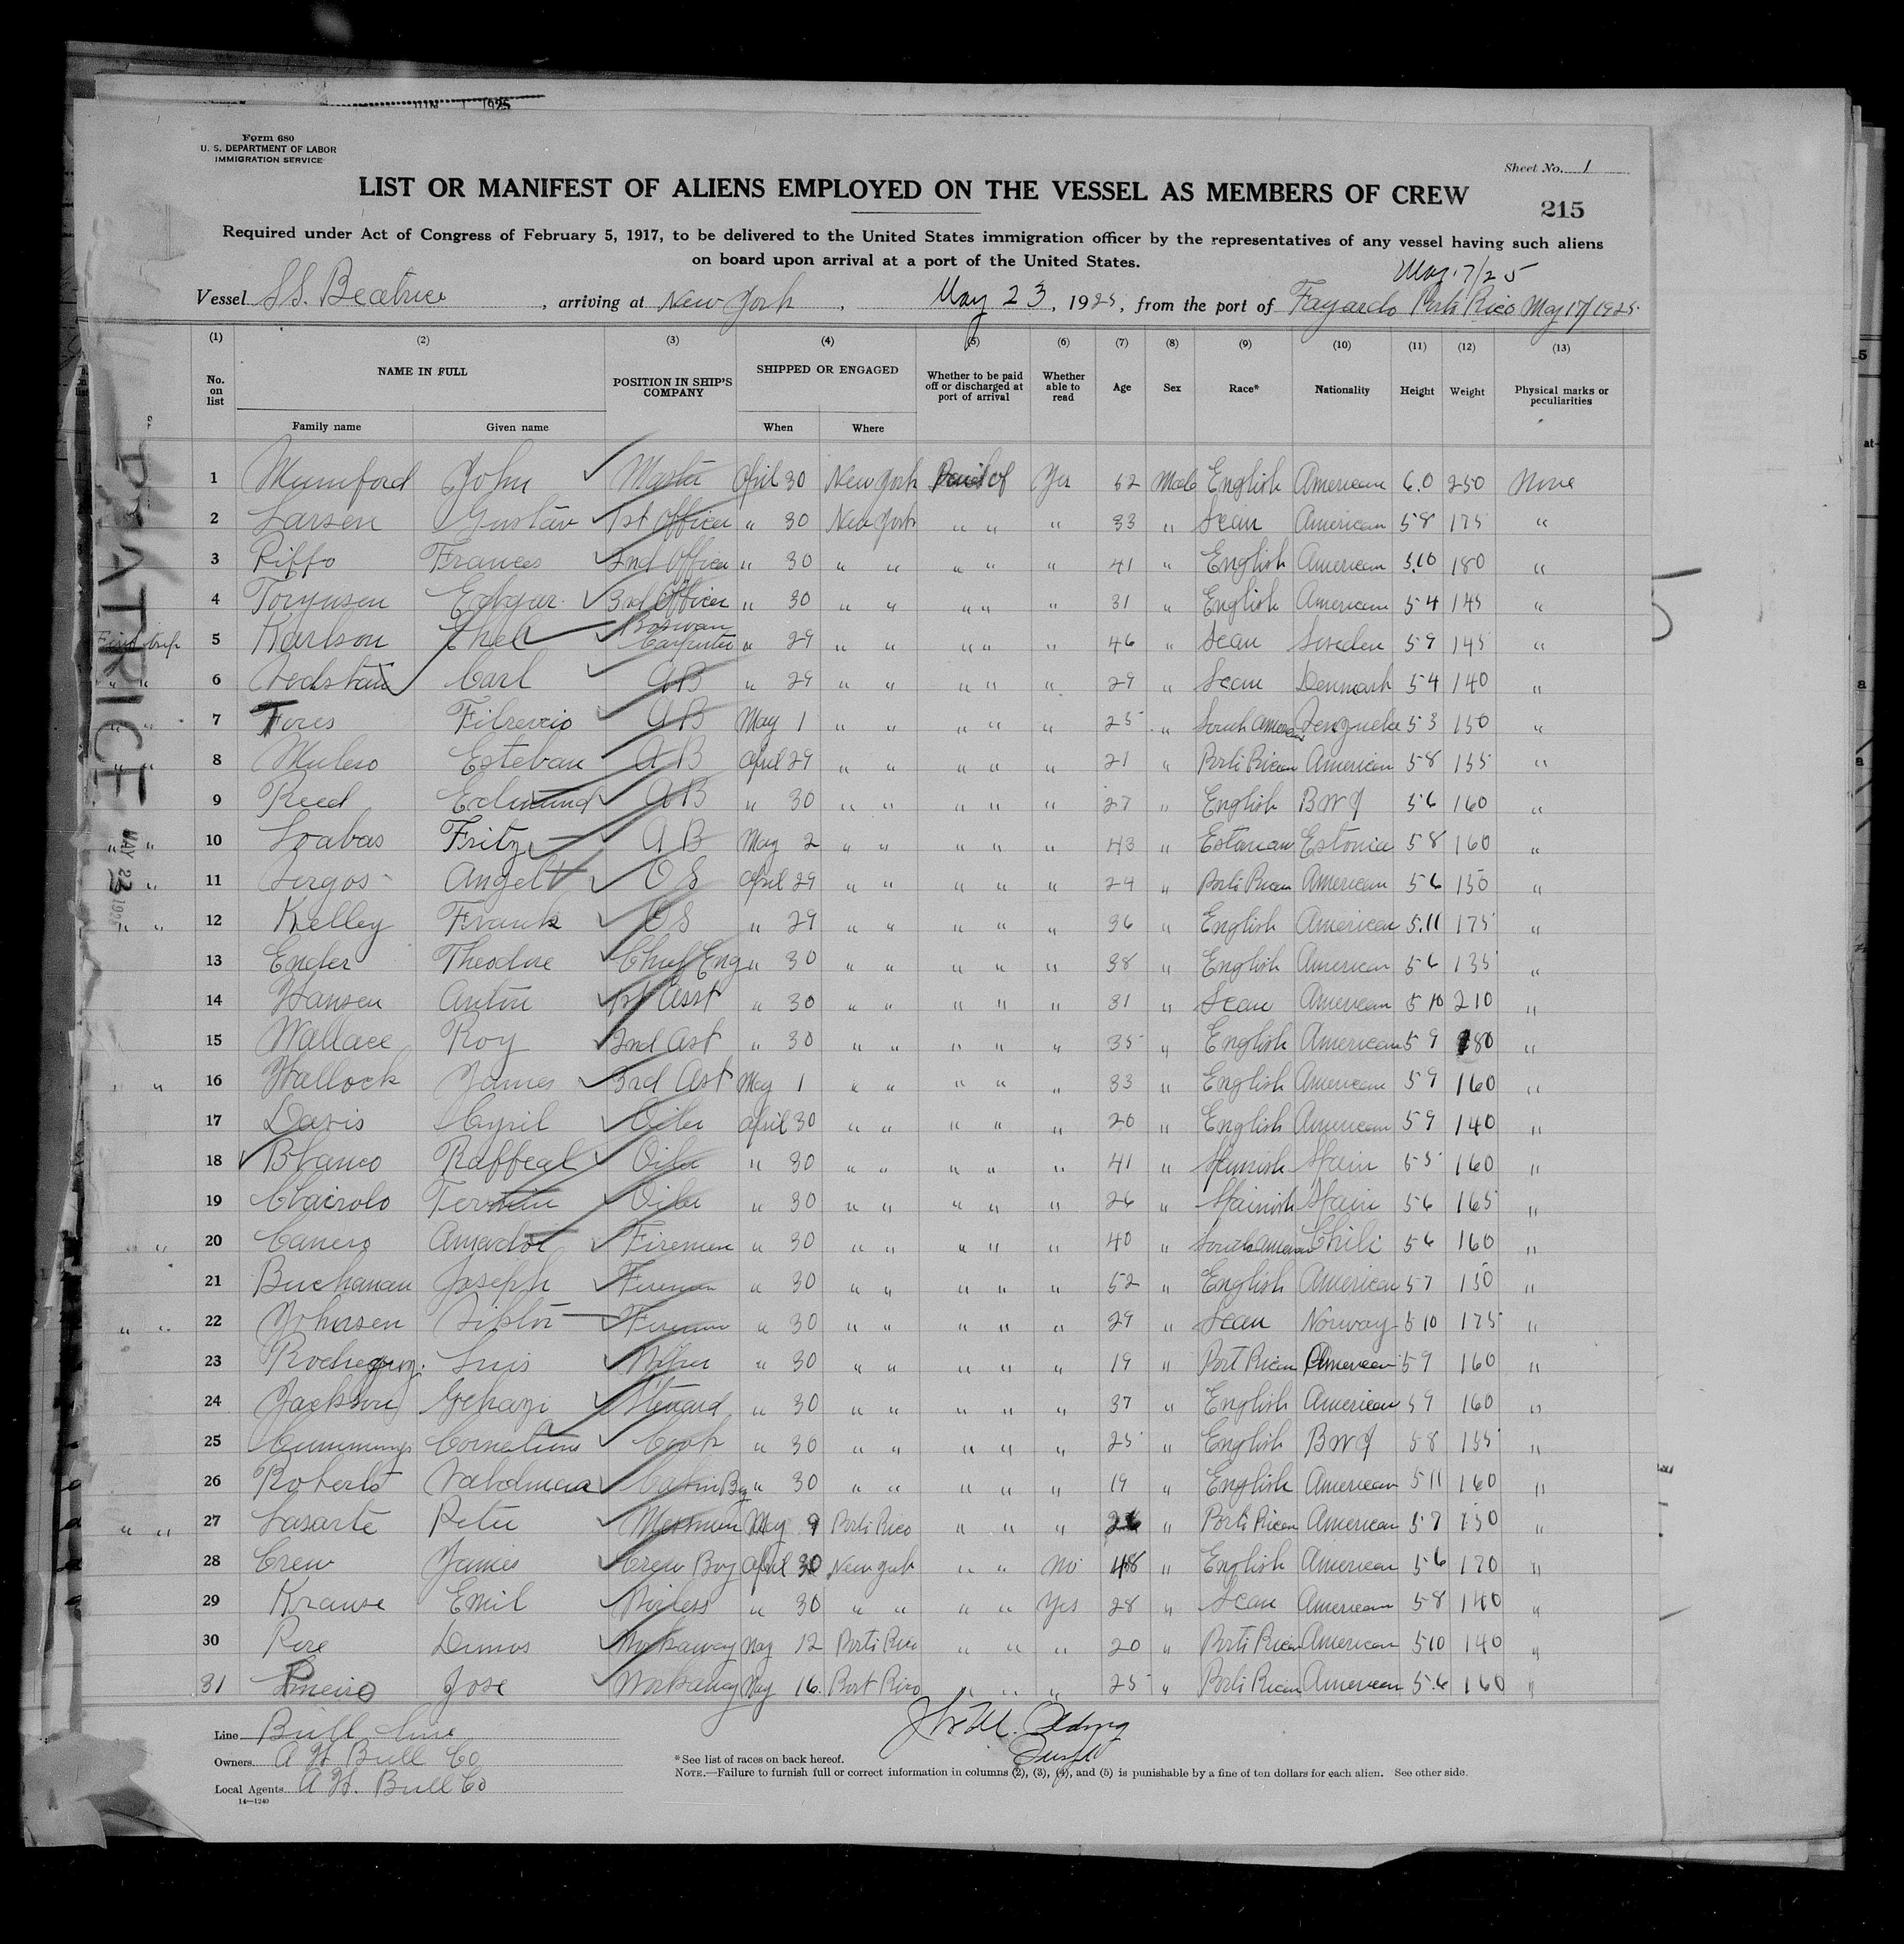 JUN 1 1925
Form 680
U. S. DEPARTMENT OF LABOR
IMMIGRATION SERVICE
Sheet No. 1
LIST OR MANIFEST OF ALIENS EMPLOYED ON THE VESSEL AS MEMBERS OF CREW
215
Required under Act of Congress of February 5, 1917, to be delivered to the United States immigration officer by the representatives of any vessel having such aliens
on board upon arrival at a port of the United States.
May 17/25
Vessel S.S. Beatrice, arriving at New York, May 23, 1925, from the port of Fayardo Porto Rico May 17/1925
(1) (2) (3) (4) (5) (6) (7) (8) (9) (10) (11) (12) (13)
No. on list NAME IN FULL POSITION IN SHIP'S COMPANY SHIPPED OR ENGAGED Whether to be paid off or discharged at port of arrival Whether able to read Age Sex Race* Nationality Height Weight Physical marks or peculiarities
Family name Given name When Where
1 Mumford John Master April 30 New York Paid of Yes 52 Male English American 6.0 250 None
2 Larsen Gustav 1st Officer " 30 New York " " " 33 " Scan American 5 8 175 "
3 Riffo Frances 2nd Officer " 30 " " " " " 41 " English American 5.10 180 "
4 Torgunsen Edgar 3rd Officer " 30 " " " " " 31 " English American 5 4 145 "
First trip 5 Karlson Thel Boswan Carpenter " 29 " " " " " 46 " Scan Sweden 5 9 145 "
" " 6 Carl AB " 29 " " " " " 29 " Scan Denmark 5 4 140 "
" " 7 Fires AB May 1 " " " " " 25 " South American Venzuela 5 3 150 "
" " 8 Mulero Esteban AB April 29 " " " " " 21 " Porti Rican American 5 8 155 "
9 Reed Edmund AB " 30 " " " " " 27 " English BWI 5 6 160 "
" " 10 Loabas Fritz AB May 2 " " " " " 43 " Estonian Estonia 5 8 160 "
" " 11 Angel OS April 29 " " " " " 24 " Porti Rican American 5 6 150 "
" " 12 Kelley Frank OS " 29 " " " " " 36 " English American 5.11 175 "
13 Ender Theodore Chief Eng " 30 " " " " " 38 " English American 5 6 135 "
14 Hansen Anton 1st Asst " 30 " " " " " 31 " Scan American 5 10 210 "
15 Wallace Roy 2nd Ast " 30 " " " " " 35 " English American 5 9 180 "
" " 16 Hallock James 3rd Ast May 1 " " " " " 33 " English American 5 9 160 "
17 Davis Cyril Oiler April 30 " " " " " 20 " English American 5 9 140 "
18 Blanco Raffeal Oiler " 30 " " " " " 41 " Spanish Spain 5 5 160 "
19 Clairolo Oiler " 30 " " " " " 26 " Spainish Spain 5 6 165 "
" " 20 Canero Amador Firemen " 30 " " " " " 40 " South American Chili 5 6 160 "
21 Buchanan Joseph Fireman " 30 " " " " " 52 " English American 5 7 150 "
" " 22 Johnsen Viktor Fireman " 30 " " " " " 29 " Scan Norway 5 10 175 "
23 Luis Wiper " 30 " " " " " 19 " Port Rican American 5 9 160 "
24 Jackson Gehazi Steward " 30 " " " " " 37 " English American 5 9 160 "
25 Cummings Cornelius Cook " 30 " " " " " 25 " English BWI 5 8 155 "
26 Roberts Cabin By " 30 " " " " " 19 " English American 5 11 160 "
" " 27 Lasarte Peter Messman May 9 Porti Rico " " " 26 " Porti Rican American 5 7 150 "
28 Crew James Crew Boy April 30 New York " " No 48 " English American 5 6 170 "
29 Krause Emil Wirless " 30 " " " " Yes 28 " Scan American 5 8 140 "
30 Rore Dumos Workaway May 12 Porti Rico " " " 20 " Porti Rican American 5 10 140 "
31 Jose Workaway May 16 Port Rico " " " 25 " Porti Rican American 5.6 160 "
BEATRICE
MAY 23 1925
Line Bull Line
Owners A H Bull Co
Local Agents A H. Bull Co
14—1240
*See list of races on back hereof.
NOTE.—Failure to furnish full or correct information in columns (2), (3), (4), and (5) is punishable by a fine of ten dollars for each alien. See other side.